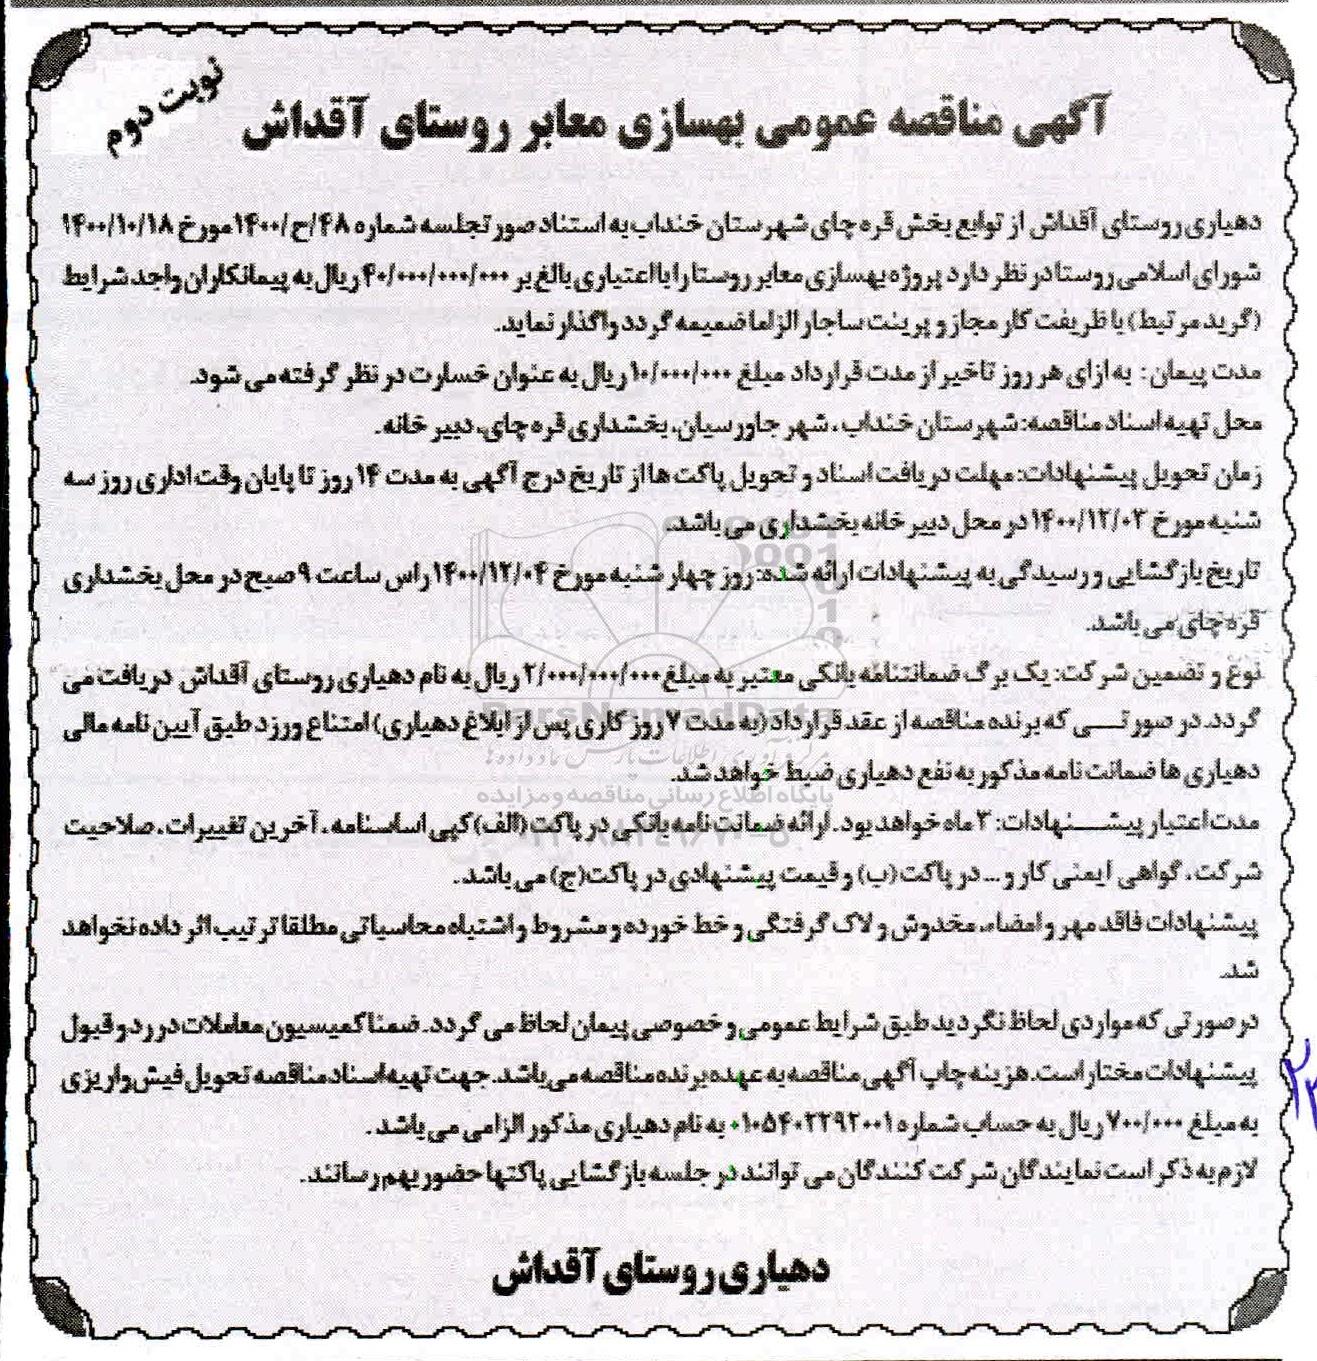 نوبت دوم
آگهی مناقصه عمومی بهسازی معابر روستای آقداش
دهیاری روستای آقداش از توابع بخش قره چای شهرستان خنداب به استناد صورتجلسه شماره ۴۸/ح/۱۴۰۰مورخ ۱۴۰۰/۱۰/۱۸
شورای اسلامی روستا در نظر دارد پروژه بهسازی معابر روستا را با اعتباری بالغ بر ۴۰/۰۰۰/۰۰۰/۰۰۰ ریال به پیمانکاران واجد شرایط
(گرید مرتبط) با ظریفت کار مجاز و پرینت ساجار الزاما ضمیمه گردد واگذار نماید.
مدت پیمان: به ازای هر روز تاخیر از مدت قرارداد مبلغ ۱۰/۰۰۰/۰۰۰ ریال به عنوان خسارت در نظر گرفته می شود.
محل تهیه اسناد مناقصه: شهرستان خنداب، شهر جاورسیان، بخشداری قره چای، دبیر خانه.
زمان تحویل پیشنهادات: مهلت دریافت اسناد و تحویل پاکت ها از تاریخ درج آگهی به مدت ۱۴ روز تا پایان وقت اداری روز سه
شنبه مورخ ۱۴۰۰/۱۲/۰۳ در محل دبیر خانه بخشداری می باشد.
تاریخ بازگشایی و رسیدگی به پیشنهادات ارائه شده: روز چهار شنبه مورخ ۱۴۰۰/۱۲/۰۴ راس ساعت ۹ صبح در محل بخشداری
قره چای می باشد.
نوع و تضمین شرکت: یک برگ ضمانتنامه بانکی معتبر به مبلغ ۲/۰۰۰/۰۰۰/۰۰۰ ریال به نام دهیاری روستای آقداش دریافت می
گردد. در صورتی که برنده مناقصه از عقد قرارداد (به مدت ۷ روز کاری پس از ابلاغ دهیاری) امتناع ورزد طبق آیین نامه مالی
دهیاری ها ضمانت نامه مذکور به نفع دهیاری ضبط خواهد شد.
مدت اعتبار پیشنهادات: ۳ ماه خواهد بود. ارائه ضمانت نامه بانکی در پاکت (الف) کپی اساسنامه، آخرین تغییرات، صلاحیت
شرکت، گواهی ایمنی کار و... در پاکت (ب) و قیمت پیشنهادی در پاکت (ج) می باشد.
پیشنهادات فاقد مهر و امضاء، مخدوش و لاک گرفتگی و خط خورده و مشروط و اشتباه محاسباتی مطلقا ترتیب اثر داده نخواهد
شد.
در صورتی که مواردی لحاظ نگردید طبق شرایط عمومی و خصوصی پیمان لحاظ می گردد. ضمنا کمیسیون معاملات در رد و قبول
پیشنهادات مختار است. هزینه چاپ آگهی مناقصه به عهده برنده مناقصه می باشد. جهت تهیه اسناد مناقصه تحویل فیش واریزی
به مبلغ ۷۰۰/۰۰۰ ریال به حساب شماره ۰۱۰۵۴۰۲۲۹۲۰۰۱ به نام دهیاری مذکور الزامی می باشد.
لازم به ذکر است نمایندگان شرکت کنندگان می توانند در جلسه بازگشایی پاکتها حضور بهم رسانند.
دهیاری روستای آقداش
ParsNamadData
پایگاه اطلاع رسانی مناقصه و مزایده